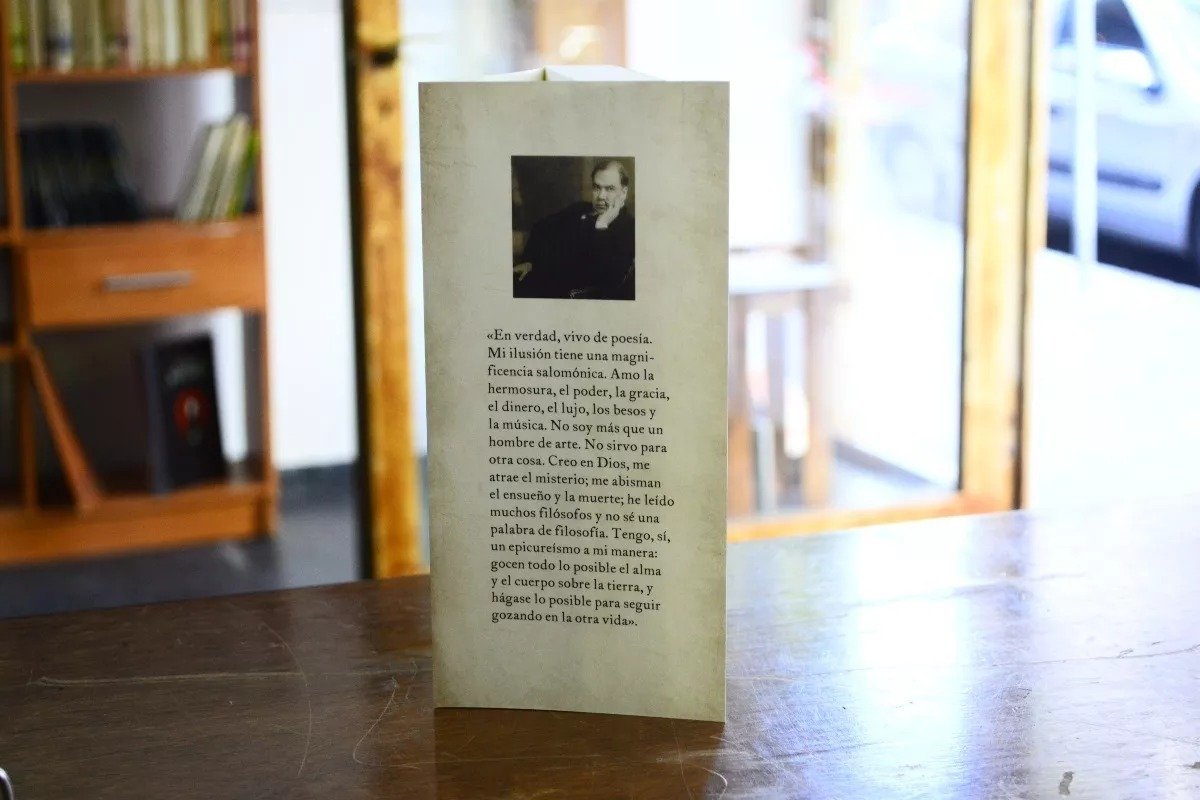 «En verdad, vivo de poesía.
Mi ilusión tiene una magni-
ficencia salomónica. Amo la
hermosura, el poder, la gracia,
el dinero, el lujo, los besos y
la música. No soy más que un
hombre de arte. No sirvo para
otra cosa. Creo en Dios, me
atrae el misterio; me abisman
el ensueño y la muerte; he leído
muchos filósofos y no sé una
palabra de filosofía. Tengo, sí,
un epicureísmo a mi manera:
gocen todo lo posible el alma
y el cuerpo sobre la tierra, y
hágase lo posible para seguir
gozando en la otra vida».